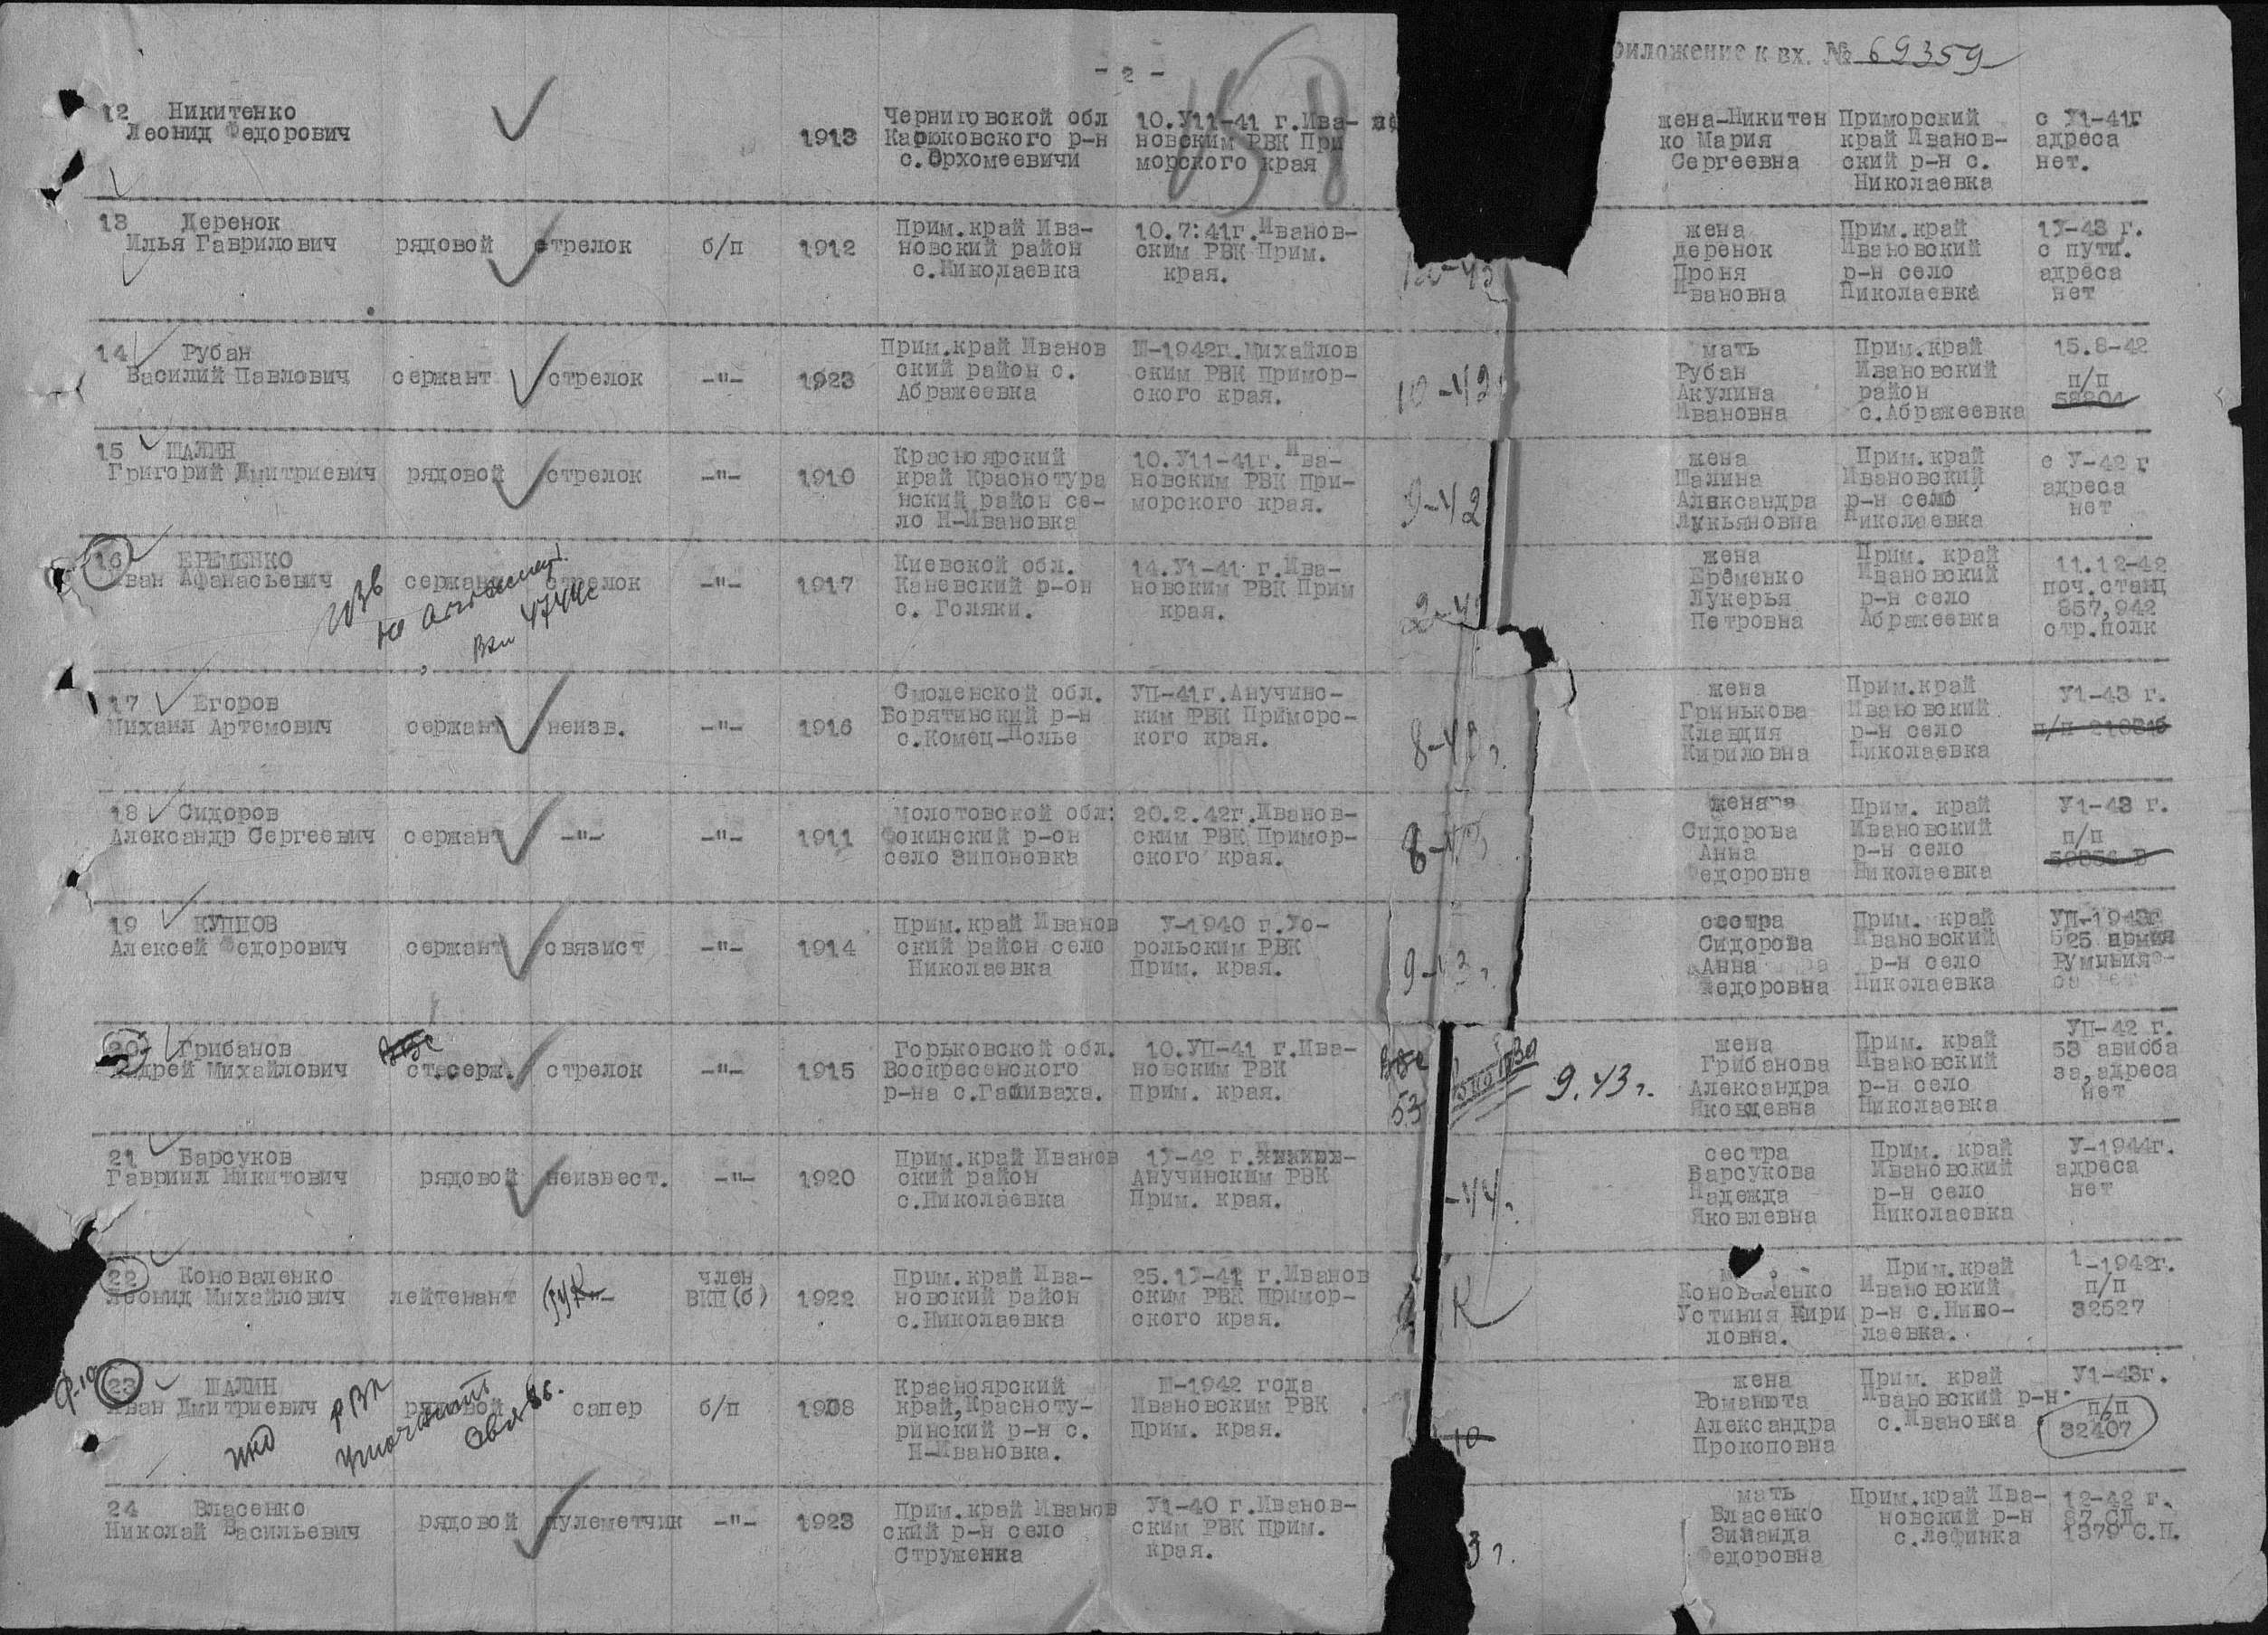 - 2 -
риложение к вх. № 69359
158
12 Никитенко
Леонид Федорович
1913
Черниговской обл
Карюковского р-н
с.Орхомеевичи
10.У11-41 г.Ива-
новским РВК При
морского края
жена-Никитен
ко Мария
Сергеевна
Приморский
край Иванов-
ский р-н с.
Николаевка
с У1-41г
адреса
нет.
13 Деренок
Илья Гаврилович
рядовой
стрелок
б/п
1912
Прим.край Ива-
новский район
с.Николаевка
10.7:41г.Иванов-
ским РВК Прим.
края.
жена
деренок
Проня
Ивановна
Прим.край
Ивановский
р-н село
Николаевка
1Х-43 г.
с пути.
адреса
нет
14 Рубан
Василий Павлович
сержант
стрелок
-"-
1923
Прим.край Иванов
ский район с.
Абражеевка
Ш-1942г.Михайлов
ским РВК Примор-
ского края.
10-42
мать
Рубан
Акулина
Ивановна
Прим.край
Ивановский
район
с.Абражеевка
15.8-42
п/п
15 ШАЛИН
Григорий Дмитриевич
рядовой
стрелок
-"-
1910
Красноярский
край Краснотура
нский район се-
ло Н-Ивановка
10.У11-41г. Ива-
новским РВК При-
морского края.
9-42
жена
Шалина
Александра
Лукьяновна
Прим.край
Ивановский
р-н село
Николаевка
с У-42 г
адреса
нет
16 ЕРЕМЕНКО
Иван Афанасьевич
сержант
стрелок
-"-
1917
Киевской обл.
Каневский р-он
с. Голяки.
14.У1-41 г.Ива-
новским РВК Прим
края.
жена
Еременко
Лукерья
Петровна
Прим. край
Ивановский
р-н село
Абражеевка
11.12-42
поч.станц
857,942
стр.полк
17 Егоров
Михаил Артемович
сержант
неизв.
-"-
1916
Смоленской обл.
Борятинский р-н
с.Комец-Полье
УП-41г.Анучинс-
ким РВК Приморс-
кого края.
жена
Гринькова
Клавдия
Кириловна
Прим.край
Ивановский
р-н село
Николаевка
У1-43 г.
18 Сидоров
Александр Сергеевич
сержант
-"-
-"-
1911
Молотовской обл:
Фокинский р-он
село Зипоновка
20.2.42г.Иванов-
ским РВК Примор-
ского края.
жена
Сидорова
Анна
Федоровна
Прим. край
Ивановский
р-н село
Николаевка
У1-43 г.
п/п
19 КУПЦОВ
Алексей Федорович
сержант
связист
-"-
1914
Прим.край Иванов
ский район село
Николаевка
У-1940 г.Хо-
рольским РВК
Прим. края.
сестра
Сидорова
Анна
Федоровна
Прим. край
Ивановский
р-н село
Николаевка
УП-1943г.
525 армия
Румыния
20 Грибанов
Андрей Михайлович
ст.серж.
стрелок
-"-
1915
Горьковской обл.
Воскресенского
р-на с.Гашиваха.
10.УП-41 г.Ива-
новским РВК
Прим. края.
53
9.43г.
жена
Грибанова
Александра
Яковлевна
Прим. край
Ивановский
р-н село
Николаевка
УП-42 г.
53 авиоба
за,адреса
нет
21 Барсуков
Гавриил Никитович
рядовой
неизвест.
-"-
1920
Прим.край Иванов
ский район
с.Николаевка
1Х-42 г.
Анучинским РВК
Прим. края.
-44г.
сестра
Барсукова
Надежда
Яковлевна
Прим. край
Ивановский
р-н село
Николаевка
У-1944г.
адреса
нет
22 Коноваленко
Леонид Михайлович
лейтенант
ГУК
член
ВКП(б)
1922
Прим.край Ива-
новский район
с.Николаевка
25.1Х-41 г.Иванов
ским РВК Примор-
ского края.
К
Коноваленко
Устиния Кири
ловна.
Прим.край
Ивановский
р-н с.Нико-
лаевка.
1-1942г.
п/п
32527
23 ШАЛИН
Иван Дмитриевич
рядовой
сапер
б/п
1908
Красноярский
край,Красноту-
ринский р-н с.
Н-Ивановка.
Ш-1942 года
Ивановским РВК
Прим. края.
жена
Романюта
Александра
Прокоповна
Прим. край
Ивановский р-н
с.Ивановка
У1-43г.
п/п
32407
24 Власенко
Николай Васильевич
рядовой
пулеметчик
-"-
1923
Прим.край Иванов
ский р-н село
Струженка
У1-40 г.Иванов-
ским РВК Прим.
края.
3г.
мать
Власенко
Зинаида
Федоровна
Прим.край Ива-
новский р-н
с.Лефинка
12-42 г.
87 СД
1379 С.П.